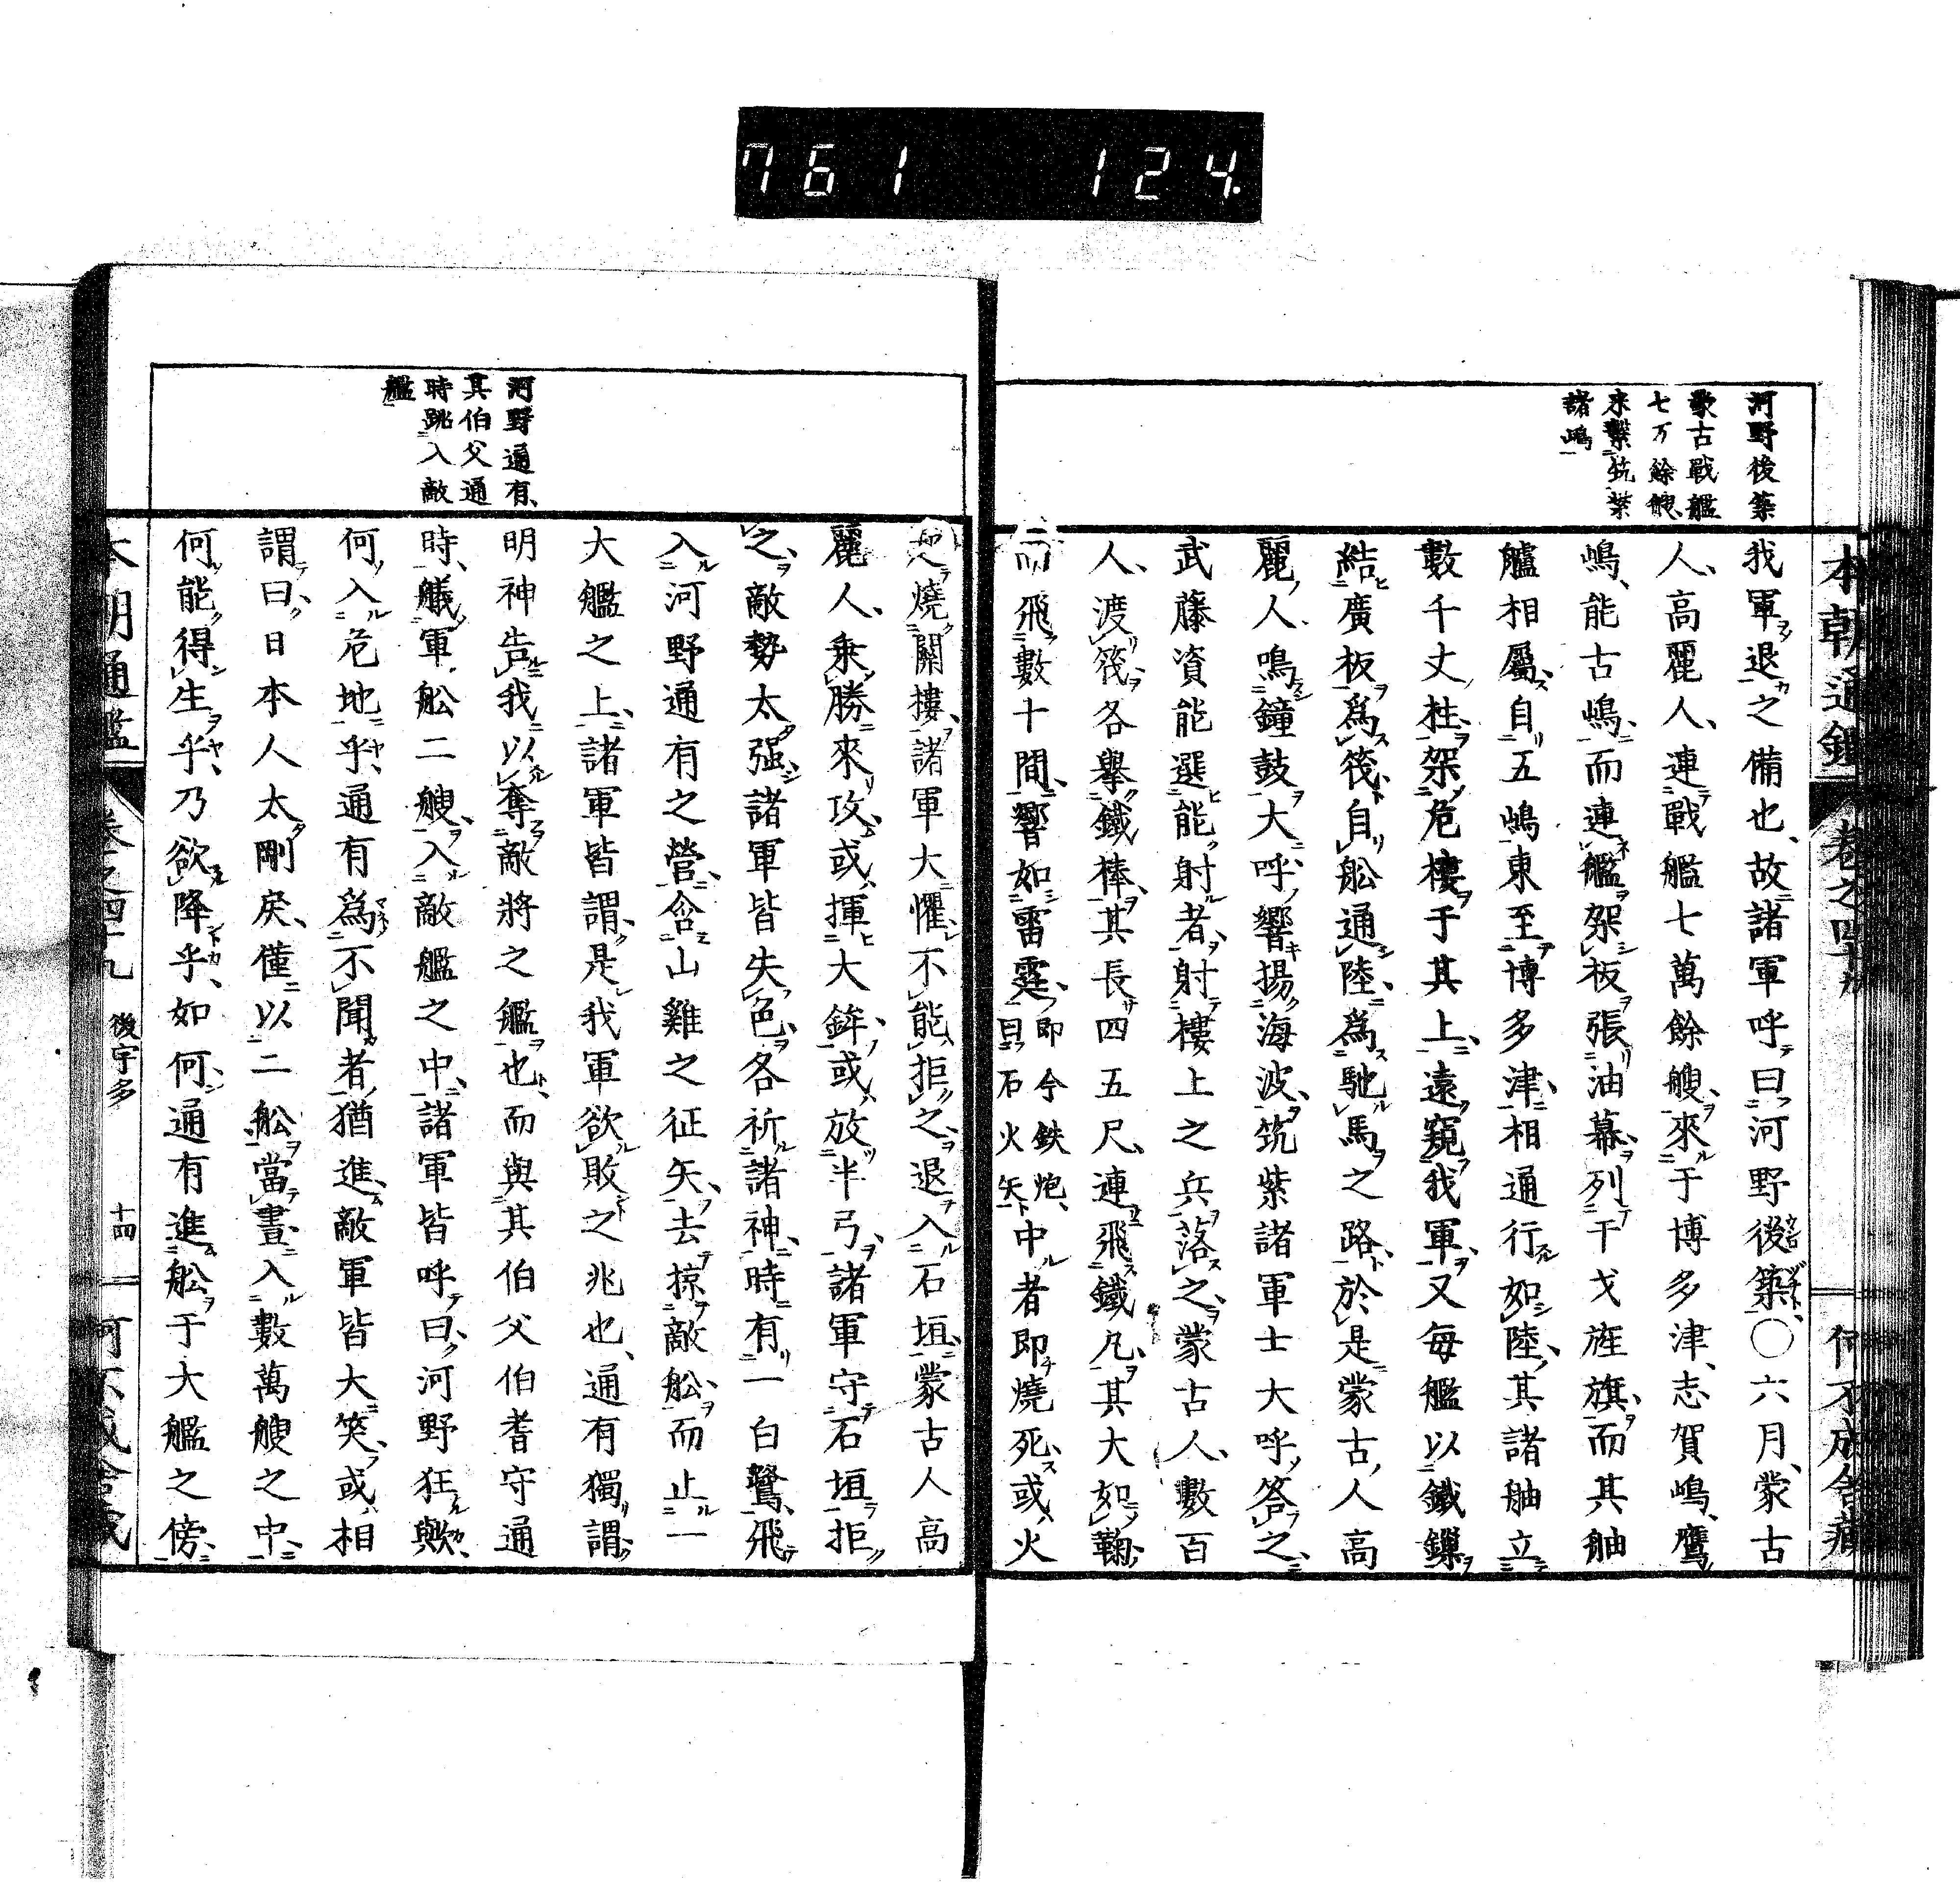 761 124
本朝通鑑 卷之四十九
何不成舎藏
河野後築
蒙古戰艦
七万餘艘
来繫筑紫
諸嶋
我軍退之備也故諸軍呼曰河野後築○六月蒙古
人高麗人連戰艦七萬餘艘來于博多津志賀嶋鷹
嶋能古嶋而連艦架板張油幕列干戈旌旗而其舳
艫相屬自五嶋東至博多津相通行如陸其諸舳立
數千丈柱架危樓于其上遠窺我軍又每艦以鐵鏁
結廣板爲筏自舩通陸爲馳馬之路於是蒙古人高
麗人鳴鐘鼓大呼響揚海波筑紫諸軍士大呼答之
武藤資能選能射者射樓上之兵落之蒙古人數百
人渡筏各擧鐵棒其長四五尺連飛鐵丸其大如鞠
而飛數十間響如雷霆即今鉄炮曰石火矢中者即燒死或火
燒關樓諸軍大懼不能拒之退入石垣蒙古人高
麗人乘勝來攻或揮大鉾或放半弓諸軍守石垣拒
之敵勢太强諸軍皆失色各祈諸神時有一白鷺飛
入河野通有之營含山雞之征矢去掠敵舩而止一
大艦之上諸軍皆謂是我軍欲敗之兆也通有獨謂
明神告我以奪敵將之艦也而與其伯父伯耆守通
時艤軍舩二艘入敵艦之中諸軍皆呼曰河野狂歟
何入危地乎通有爲不聞者猶進敵軍皆大笑或相
謂曰日本人太剛戾僅以二舩當晝入數萬艘之中
何能得生乎乃欲降乎如何通有進舩于大艦之傍
河野通有
其伯父通
時跳入敵
艦
本朝通鑑 卷之四十九 後宇多 十四
何不成舎藏